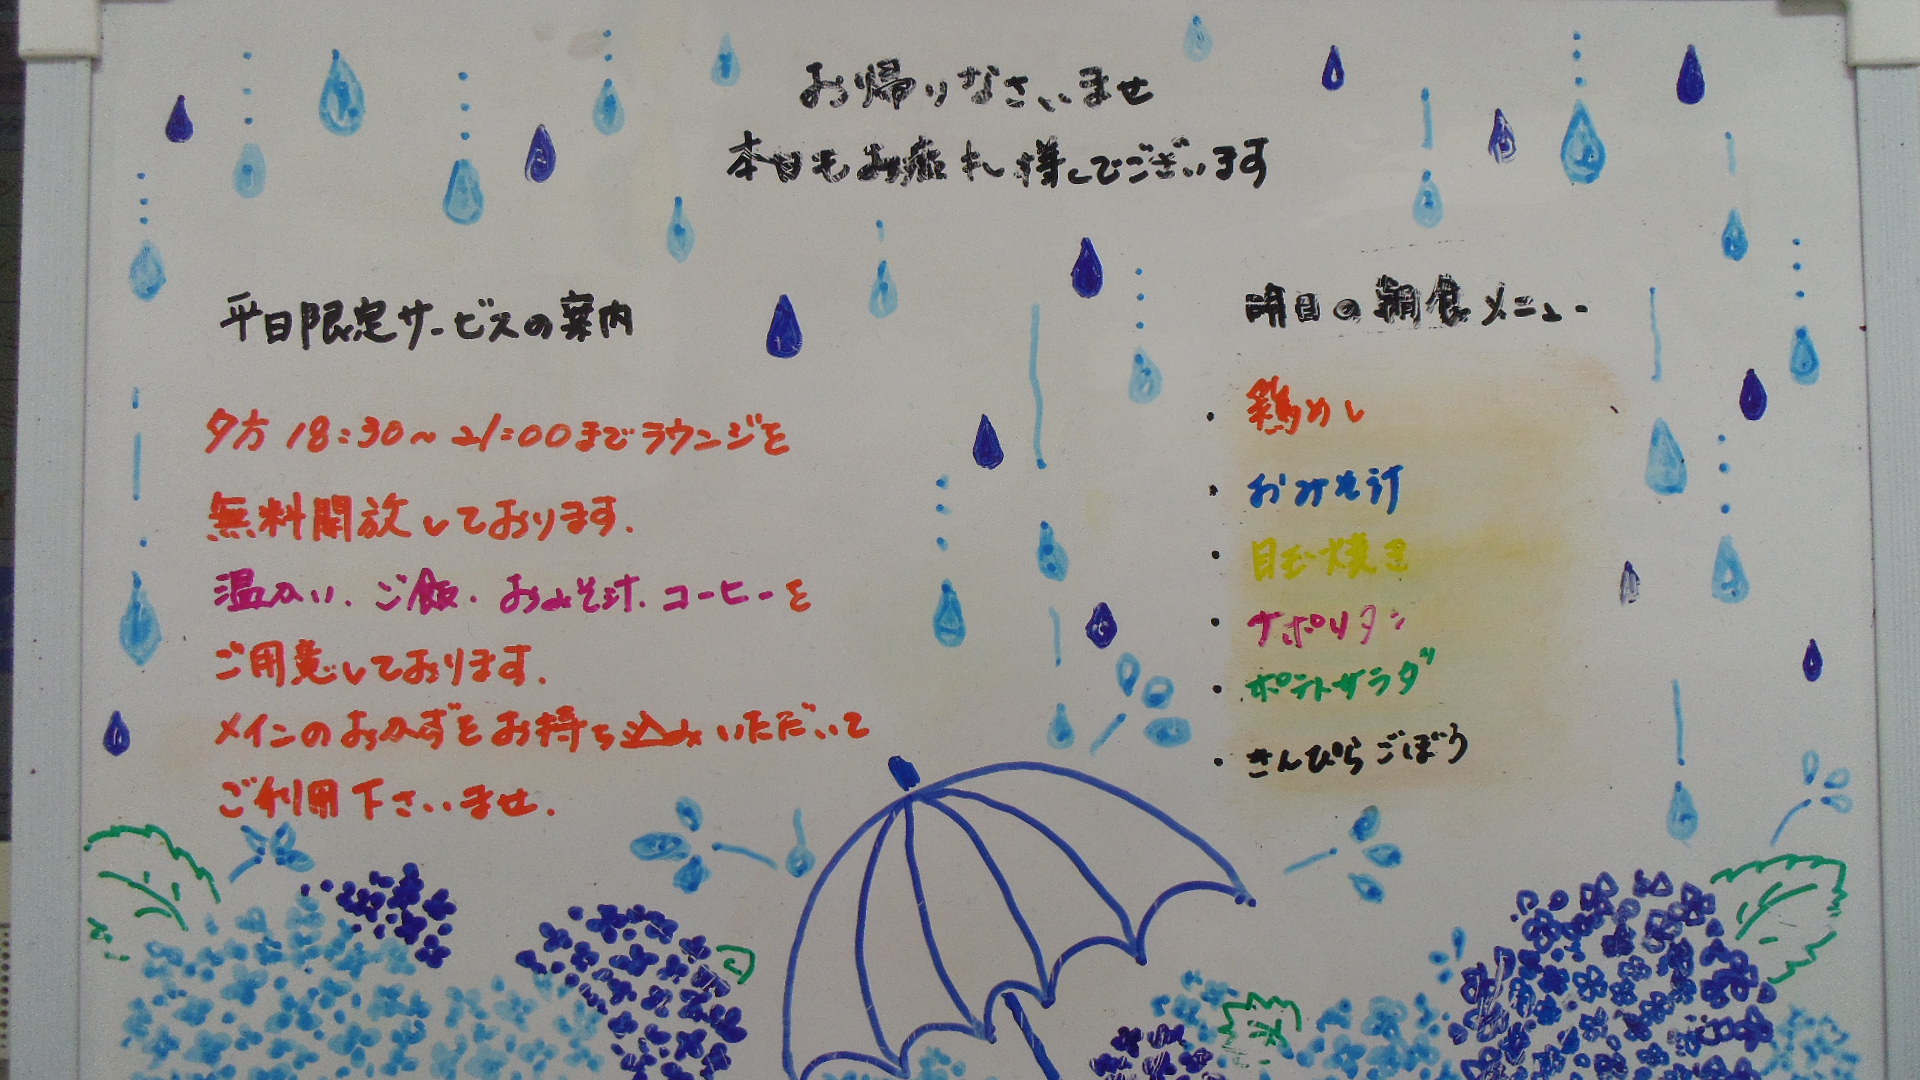 お帰りなさいませ
本日もお疲れ様でございます
平日限定サービスの案内
夕方 18:30〜21:00までラウンジを
無料開放しております.
温かい、ご飯、おみそ汁、コーヒーを
ご用意しております.
メインのおかずをお持ち込みいただいて
ご利用下さいませ.
明日の朝食メニュー
・鶏めし
・おみそ汁
・目玉焼き
・ナポリタン
・ポテトサラダ
・きんぴらごぼう